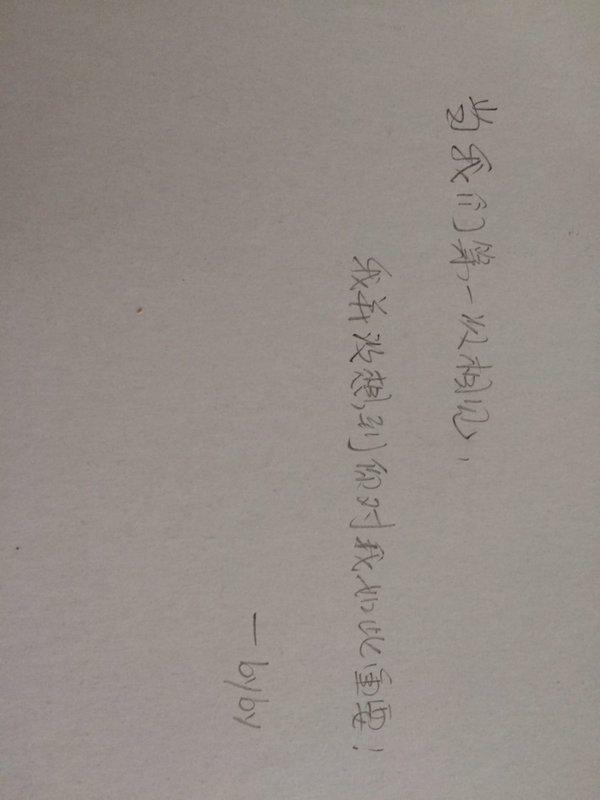 当我们第一次相见，
我并没想到你对我如此重要！
— byby